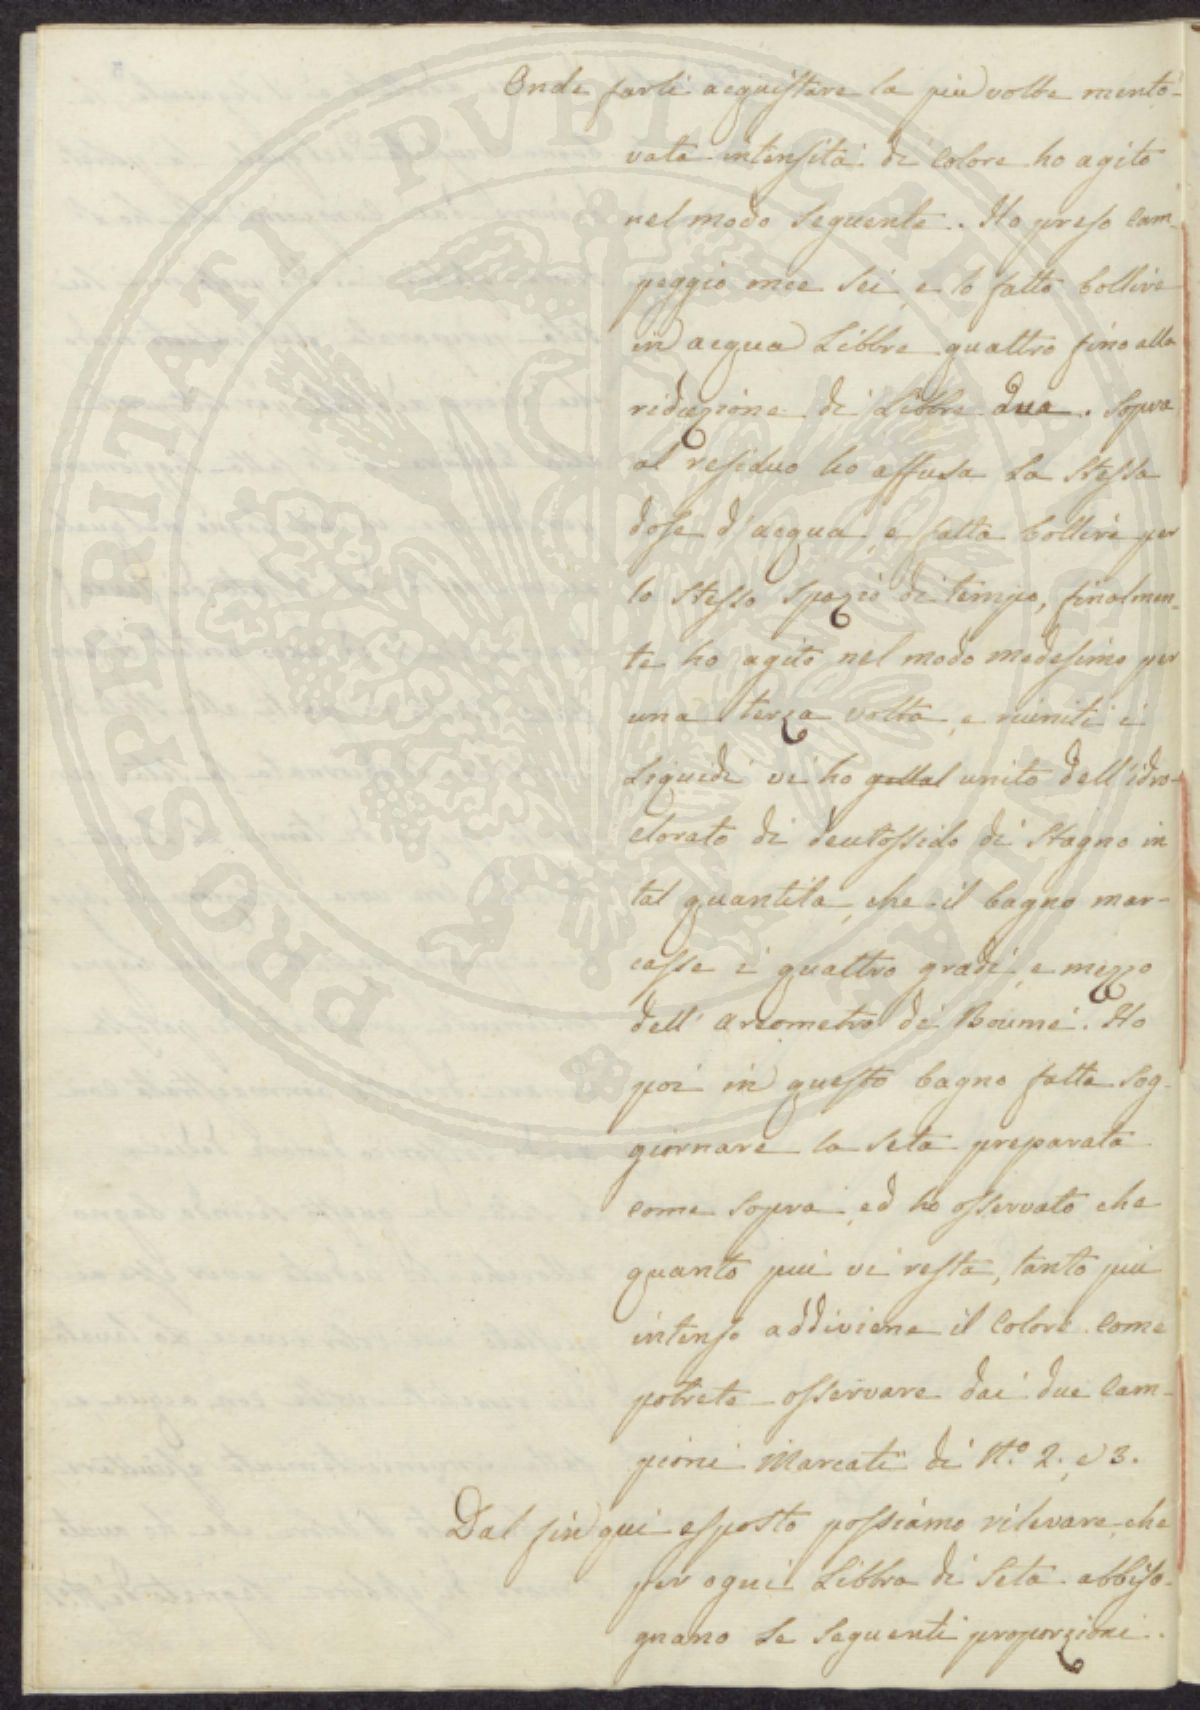 Onde farli acquistare la più volte mento-
vata intensità di Colore ho agito
nel modo seguente. Ho preso Cam-
peggio once sei, e lo fatto bollire
in acqua Libbre quattro fino alla
riduzione di Libbre due. Sopra
al residuo ho affusa La stessa
dose d'acqua, e fatta bollire per
lo stesso spazio di tempo, finalmen-
te ho agito nel modo medesimo per
una terza volta, e riuniti i
Liquidi vi ho unito dell'idro-
clorato di deutossido di Stagno in
tal quantità, che il bagno mar-
casse i quattro gradi, e mezzo
dell'Areometro di Boumé. Ho
poi in questo bagno fatta sog-
giornare la Seta preparata
come sopra, ed ho osservato che
quanto più vi resta, tanto più
intenso addiviene il Colore come
potrete osservare dai due Cam-
pioni Marcati di N.º 2. e 3.
Dal fin qui esposto possiamo rilevare che
per ogni Libbra di Seta abbiso-
gnano Le seguenti proporzioni.
PROSPERITATI PVBLICAE AVGENDAE